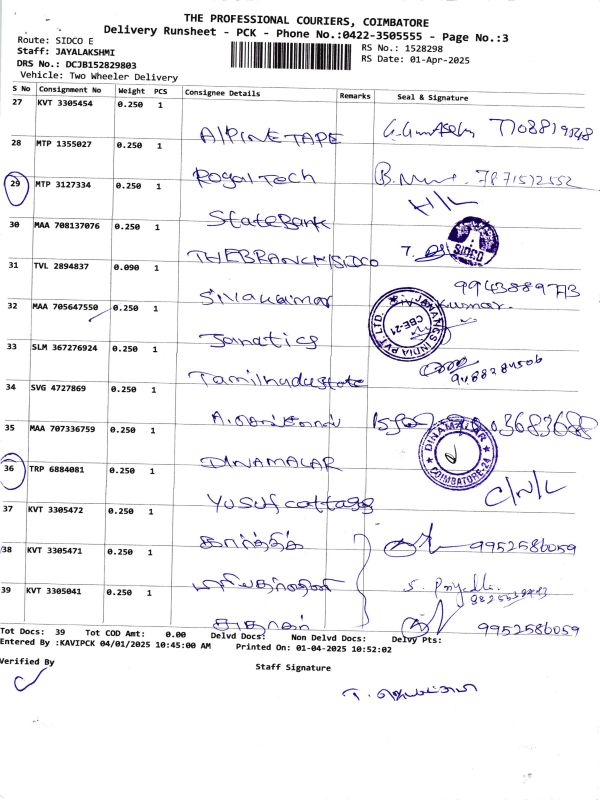 THE PROFESSIONAL COURIERS, COIMBATORE
Delivery Runsheet - PCK - Phone No.:0422-3505555 - Page No.:3
Route: SIDCO E
RS No.: 1528298
Staff: JAYALAKSHMI
RS Date: 01-Apr-2025
DRS No.: DCJB152829803
Vehicle: Two Wheeler Delivery
S No Consignment No Weight PCS Consignee Details Remarks Seal & Signature
27 KVT 3305454 0.250 1
ALPINE TAPE 7708819548
28 MTP 1355027 0.250 1
Royal Tech 7871572552
29 MTP 3127334 0.250 1 H/L
State Bank
30 MAA 708137076 0.250 1
THE BRANCH/SIDCO SIDCO
31 TVL 2894837 0.090 1
Sivakumar
32 MAA 705647550 0.250 1
Janatics JANATICS INDIA PVT LTD. CBE-21
33 SLM 367276924 0.250 1
Tamilnadu state
34 SVG 4727869 0.250 1
35 MAA 707336759 0.250 1
DINAMALAR DINAMALAR COIMBATORE-24
36 TRP 6884081 0.250 1
Yusuf cottage C/N/L
37 KVT 3305472 0.250 1
கார்த்திக் 9952586059
38 KVT 3305471 0.250 1
39 KVT 3305041 0.250 1
9952586059
Tot Docs: 39 Tot COD Amt: 0.00 Delvd Docs: Non Delvd Docs: Delvy Pts:
Entered By :KAVIPCK 04/01/2025 10:45:00 AM Printed On: 01-04-2025 10:52:02
Verified By
Staff Signature